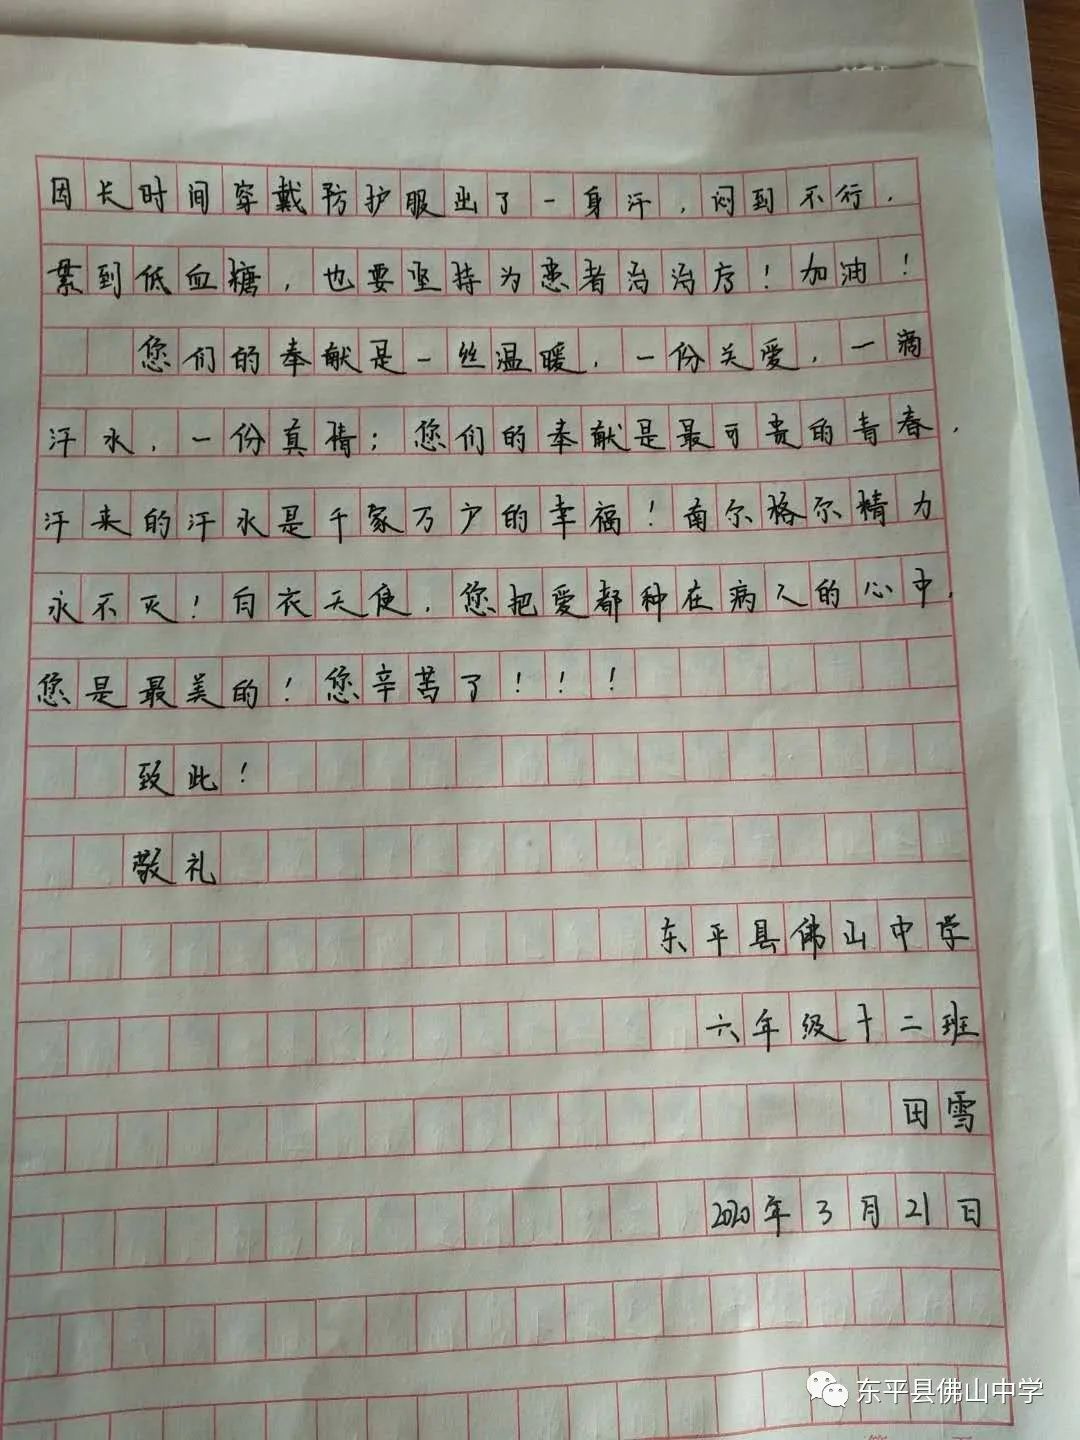 因长时间穿戴防护服出了一身汗，闷到不行，
累到低血糖，也要坚持为患者治治疗！加油！
您们的奉献是一丝温暖，一份关爱，一滴
汗水，一份真情；您们的奉献是最可贵的青春，
汗来的汗水是千家万户的幸福！南尔格尔精力
永不灭！白衣天使，您把爱都种在病人的心中，
您是最美的！您辛苦了！！！
致此！
敬礼
东平县佛山中学
六年级十二班
田雪
2020年3月21日
东平县佛山中学